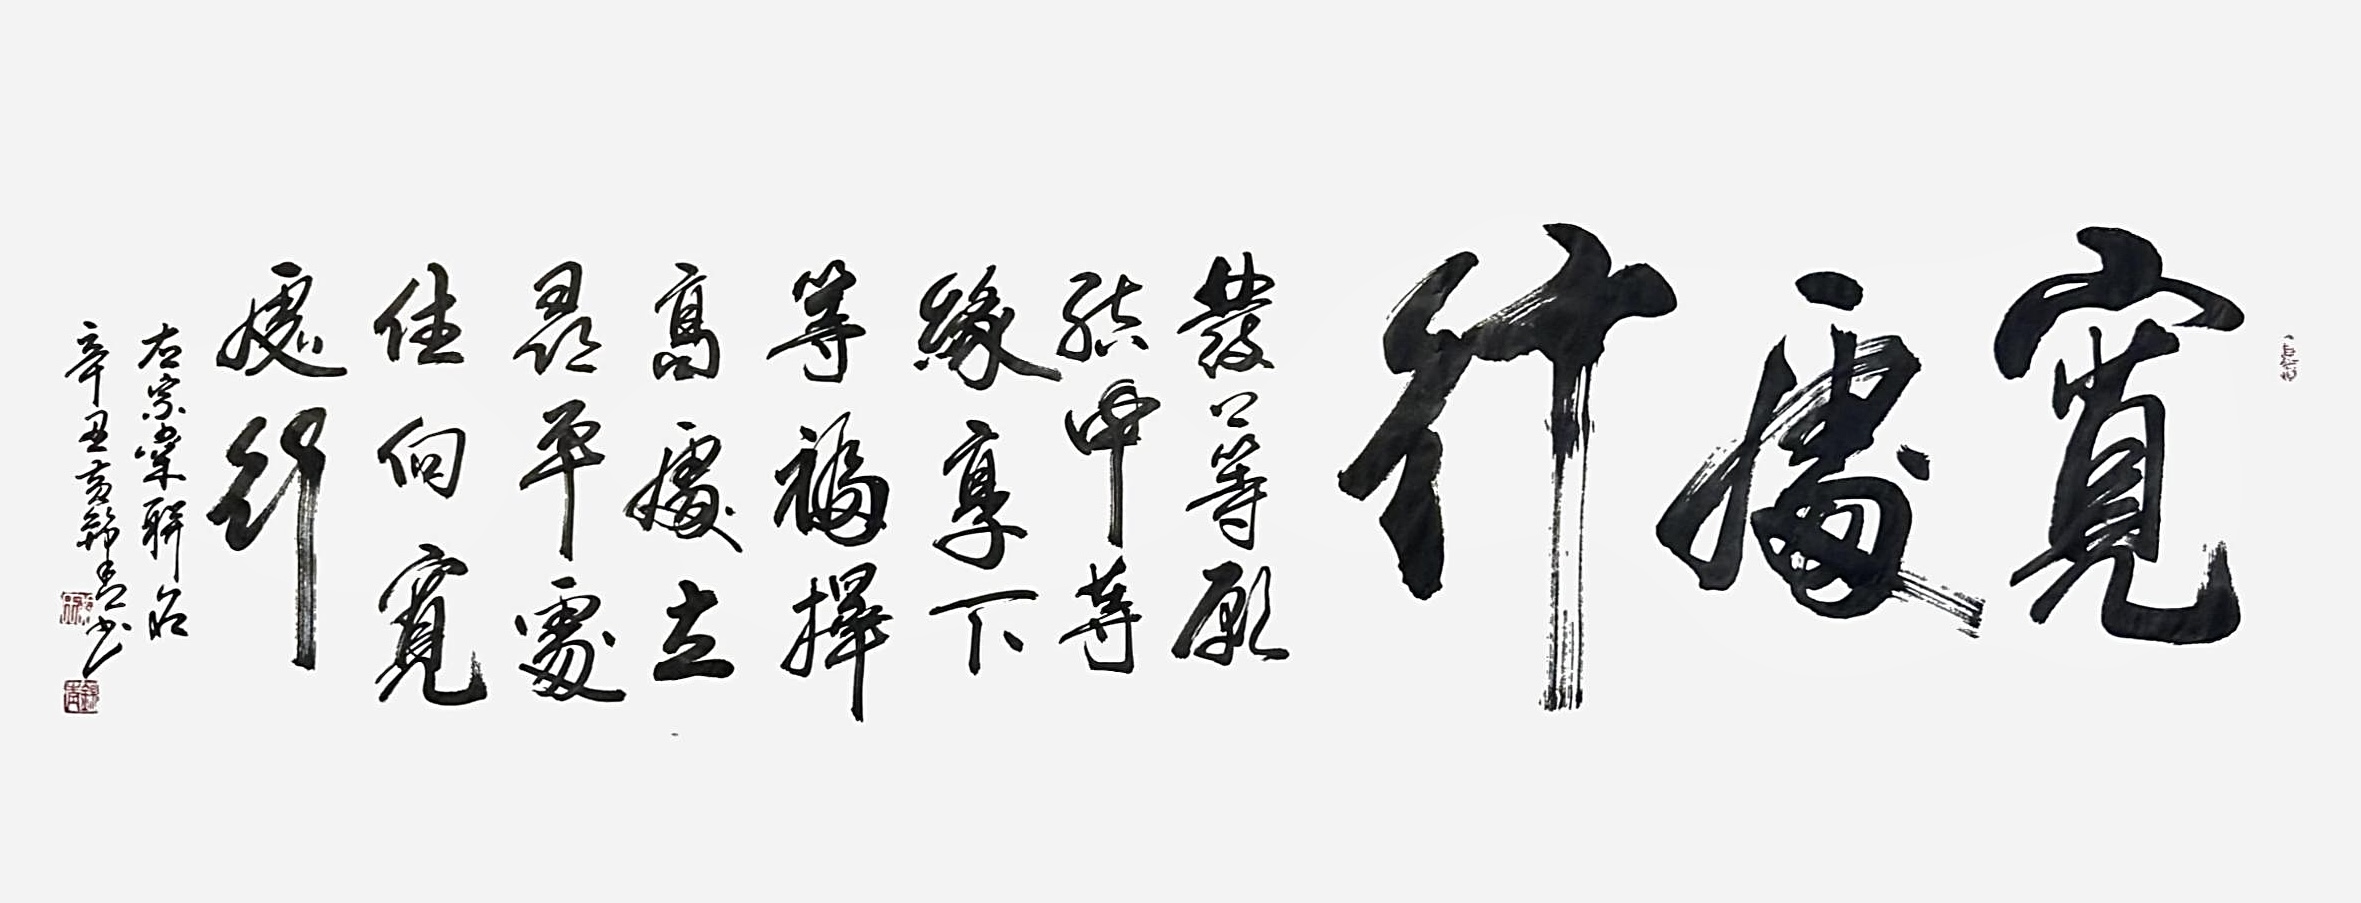 寬處行
發上等願
結中等
緣享下
等福擇
高處立
尋平處
住向寬
處行
左宗棠聯
辛丑黃錦書